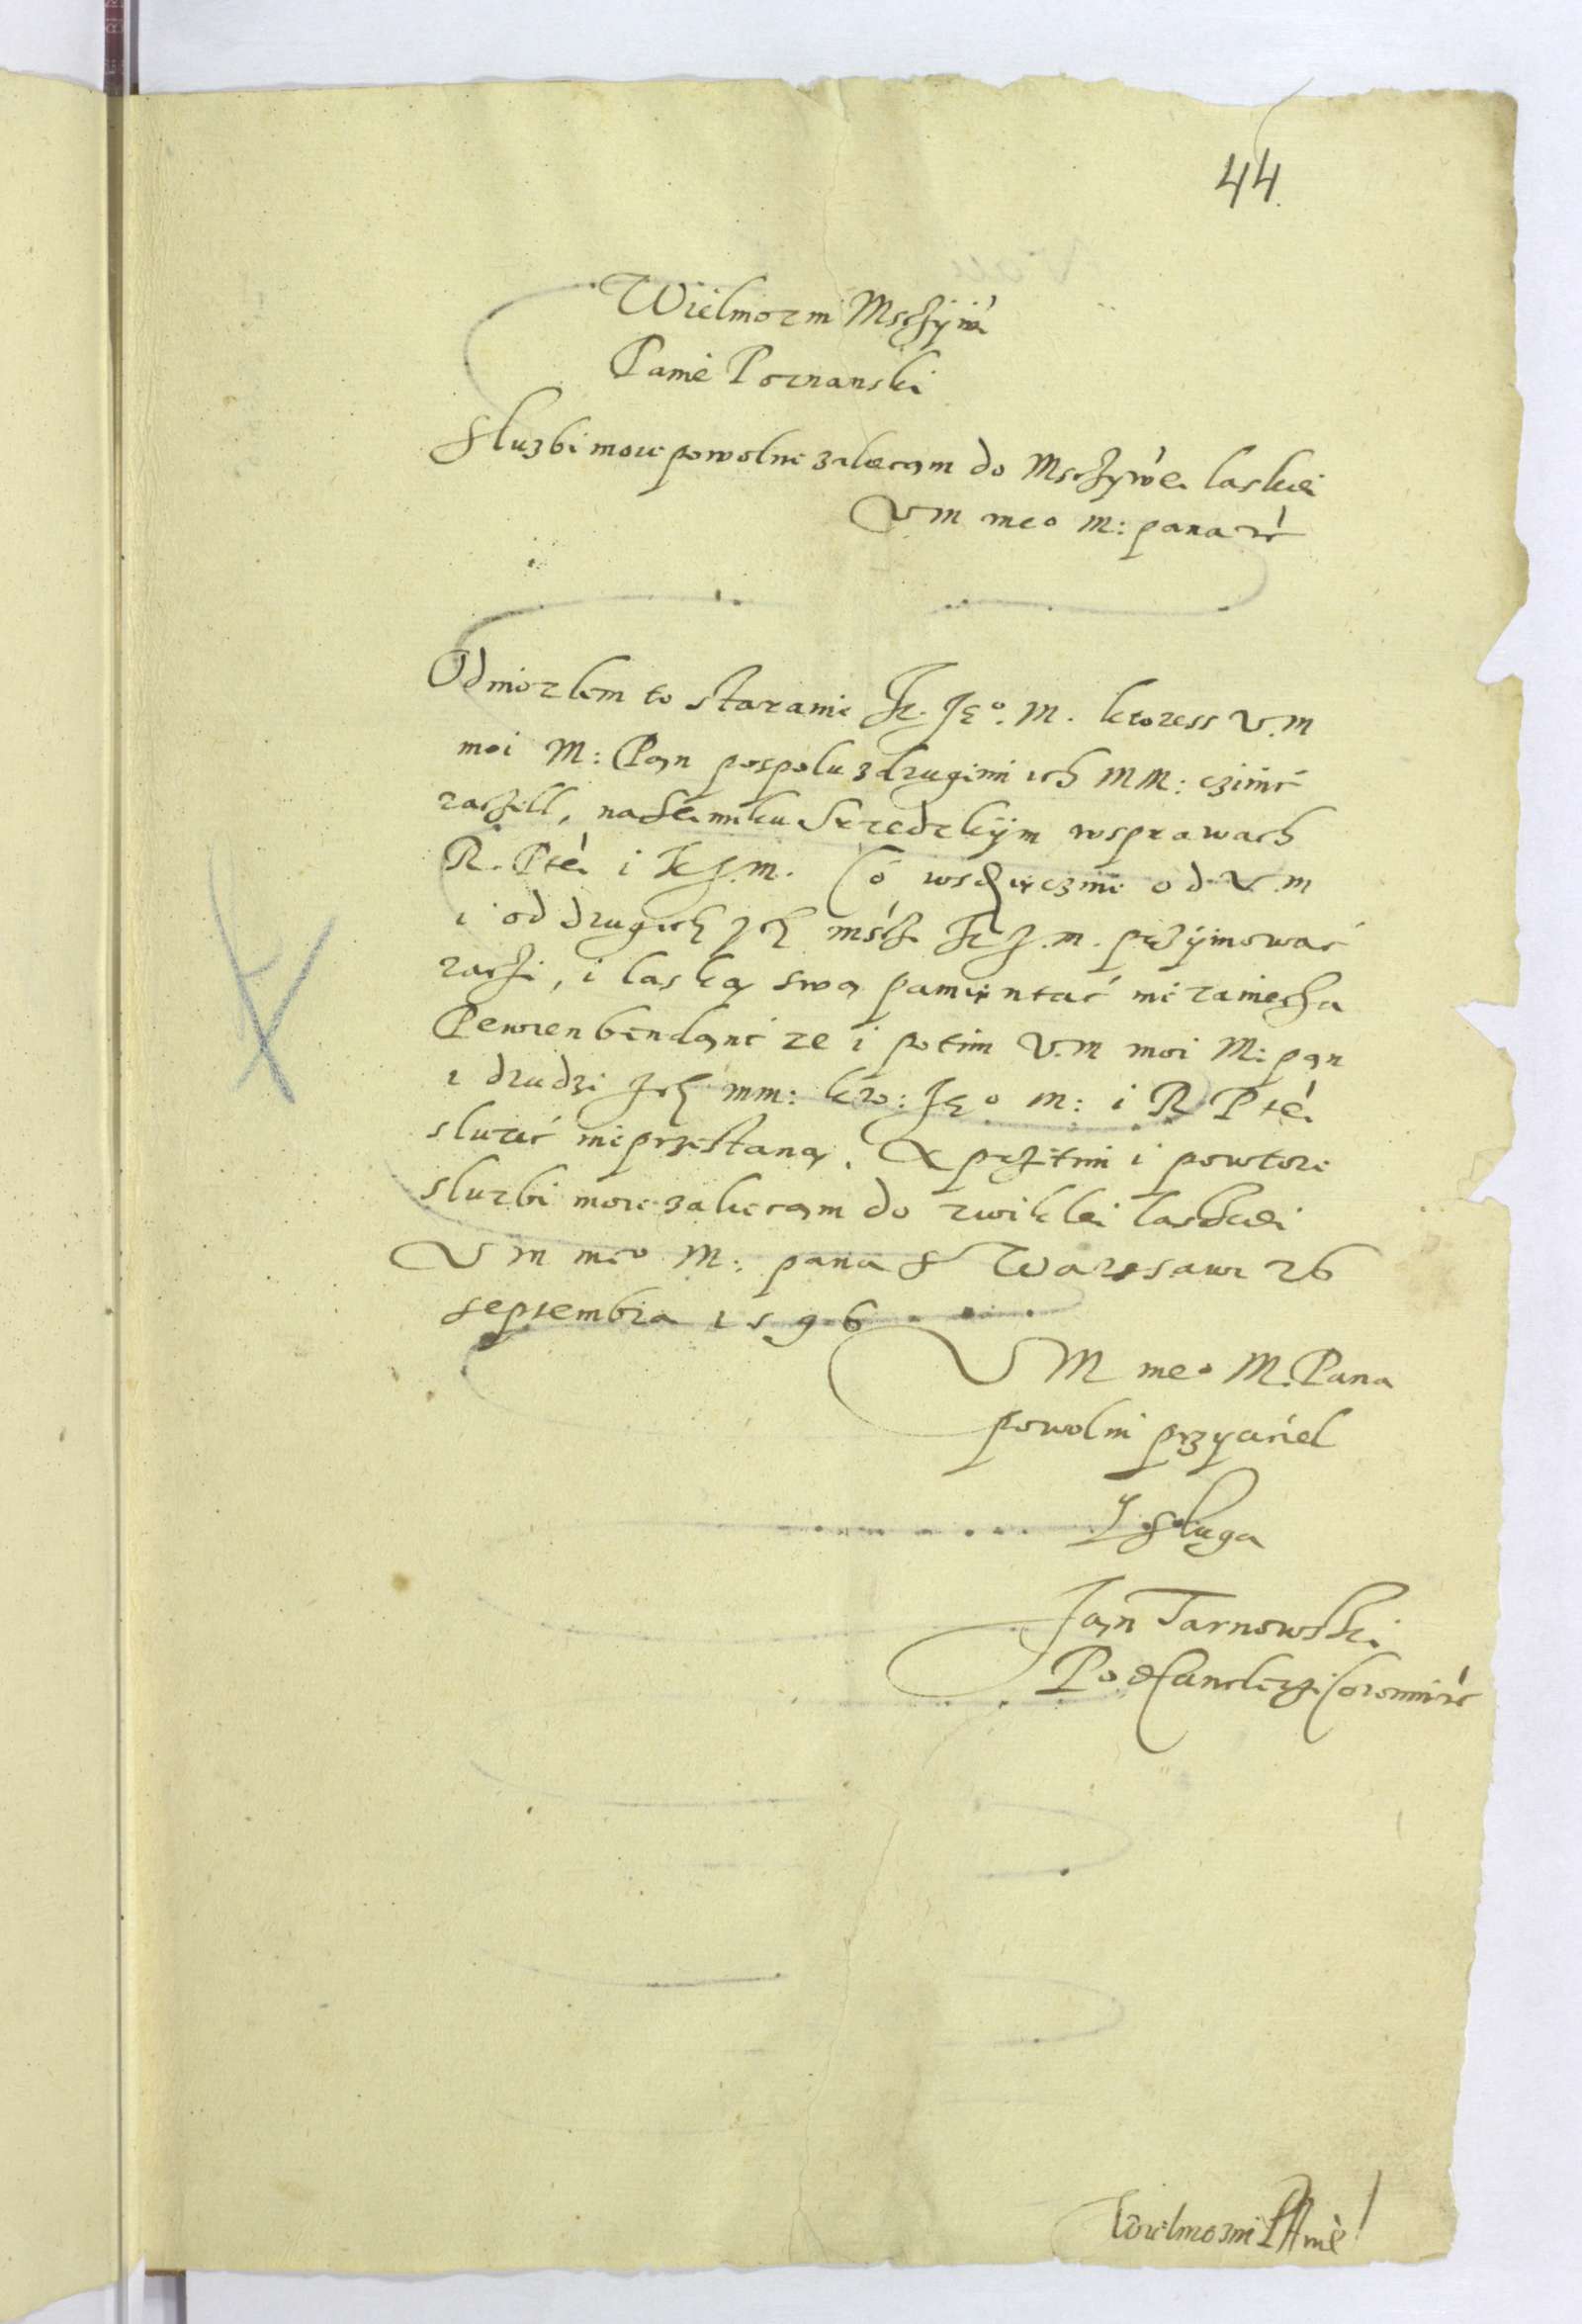 44
Wielmozni Mscziwi
Panie Poznanski
Sluzbi moie powolne zalecam do Mscziwei laskiei
V M meo M: pana etc
Odniozlem to staranie K. Jeo. M. ktoress V. m
moi M: Pan pospolu z drugimi ich MM: czinić
raczill, na Seimiku Srzedzkijm w sprawach
R. Ptei i K J. m. Co wsdzięcznie od V. m
i od drugich Ich mści K J. m. przijmować
raczi, i laską swą pamientać nie zaniecha
Pewien bendanc ze i potim V. m moi M: pan
i drudzi Ich mm: kro: Jeo m: i R Ptei
sluzić nie przestaną. A przitim i powtore
sluzbi moie zalecam do zwiklei laskiei
V m meo M: pana S Warssawi 26
septembra 1596
V M meo M. Pana
powolni przyaciel
Y Sluga
Jan Tarnowski
Podcanclerzi Coronni
Wielmozni PAnie!